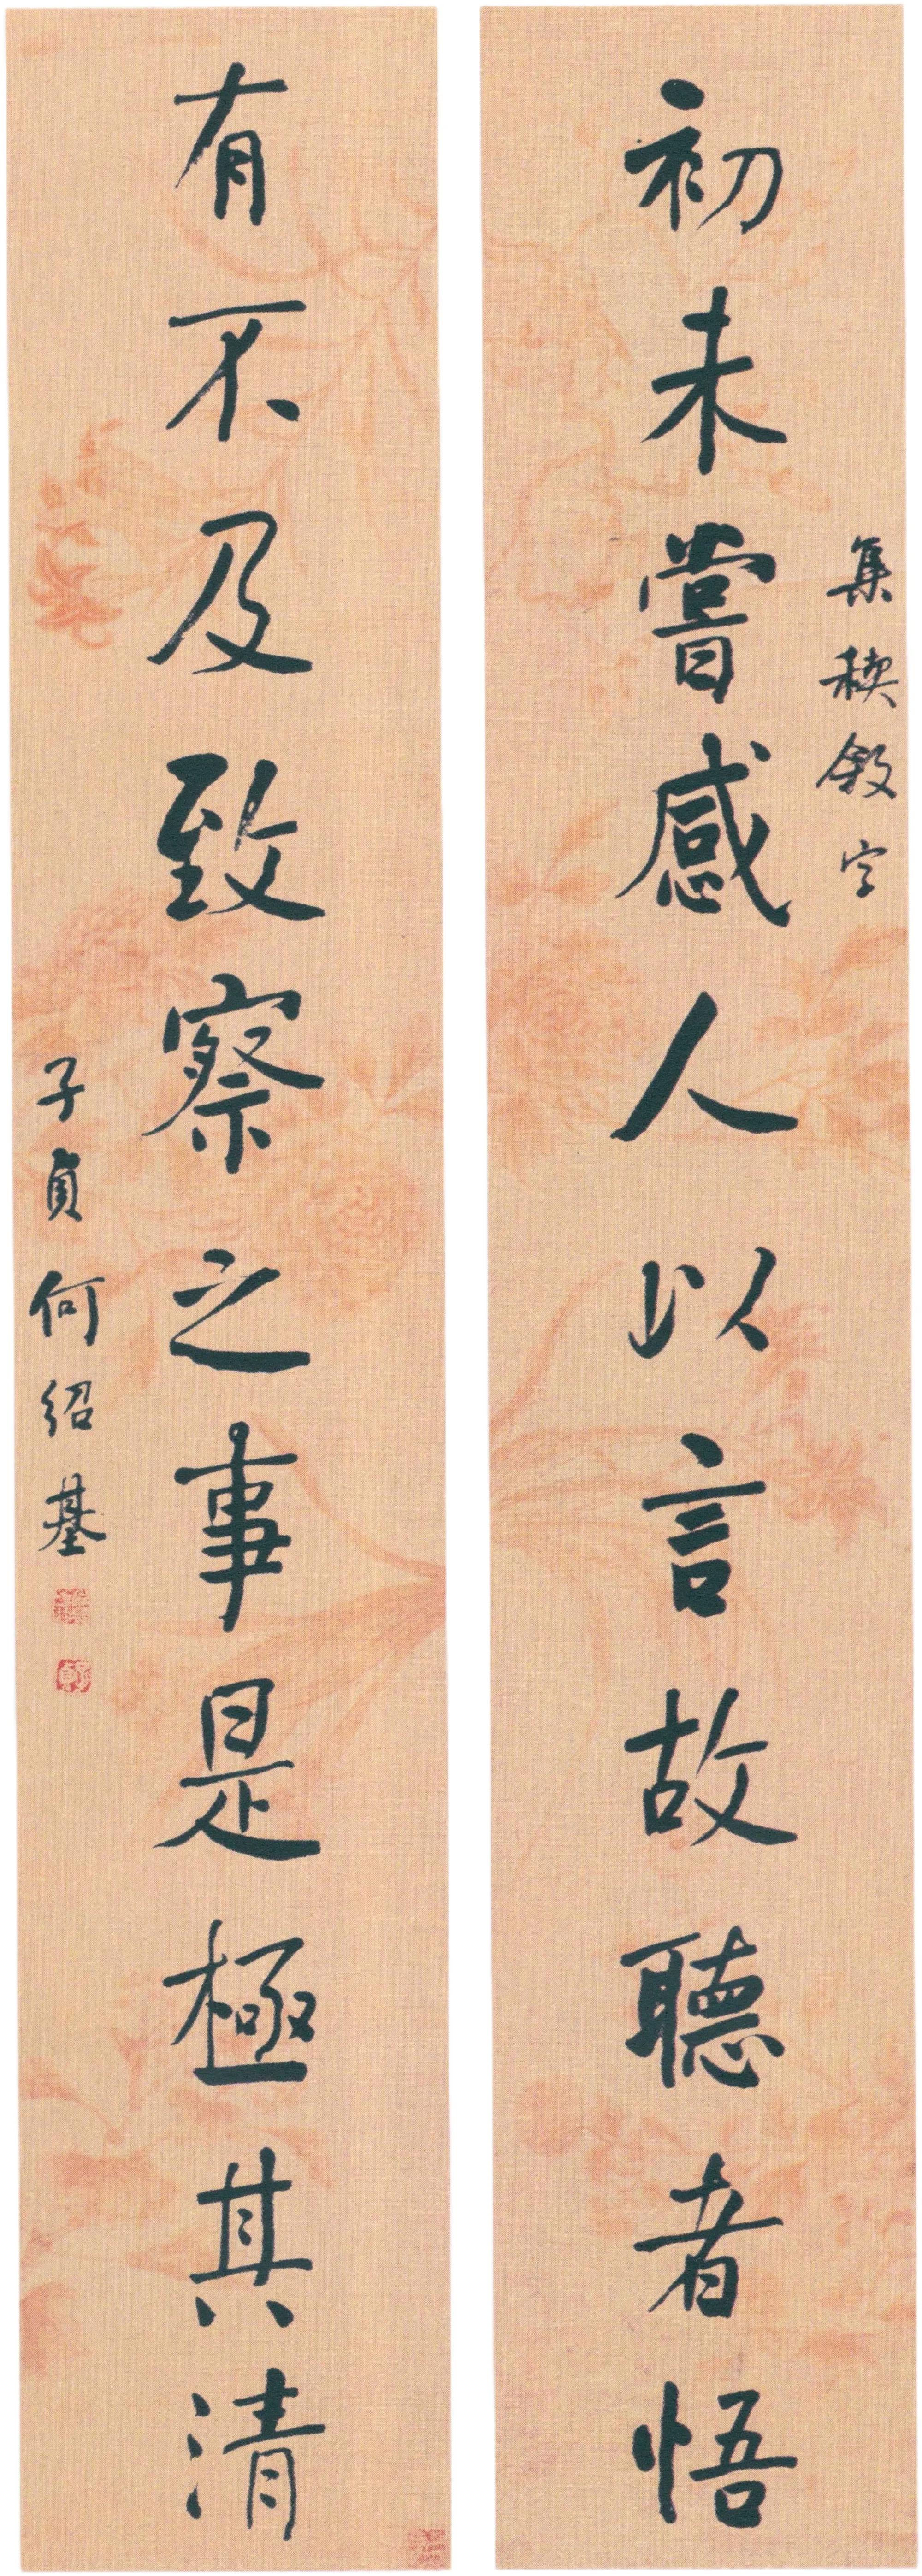 集稧敘字
初未嘗感人以言故聽者悟
有不及致察之事是極其清
子貞何紹基